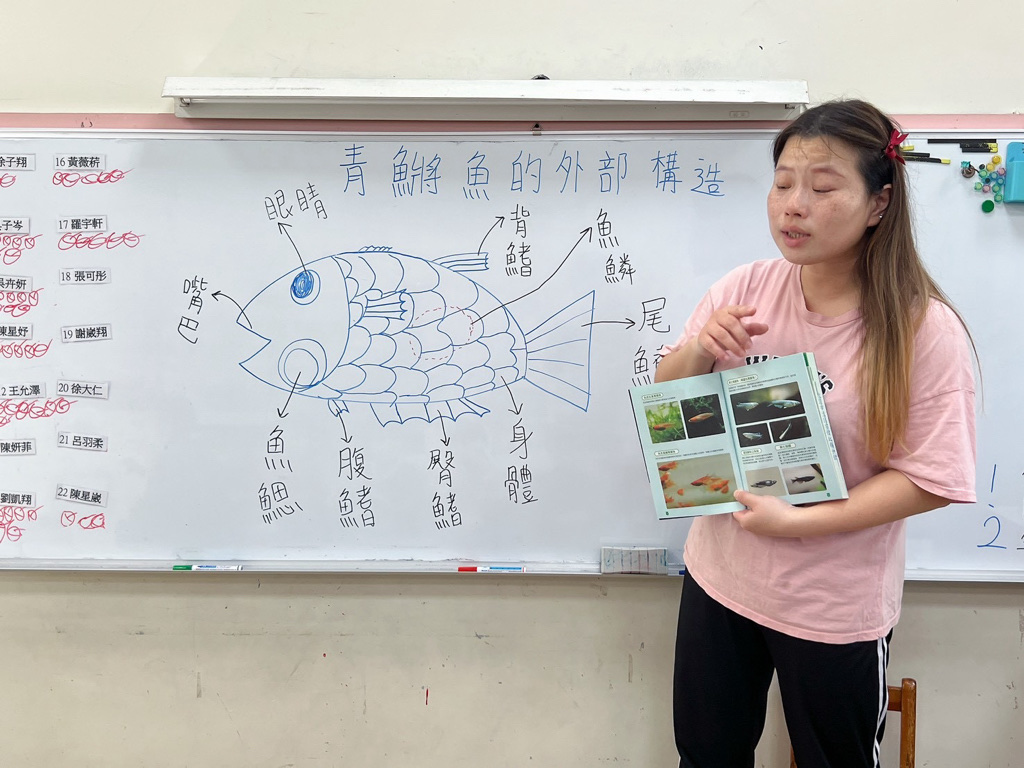 青鱂魚的外部構造
眼睛
背鰭
魚鱗
嘴巴
尾
魚鰓
腹鰭
臀鰭
身體
徐子翔
16 黃薇蓒
子岑
17 羅宇軒
吳卉妍
18 張可彤
陳星妤
19 謝崴翔
2 王允澤
20 徐大仁
陳妍菲
21 呂羽柔
劉凱翔
22 陳星崴
1.
2